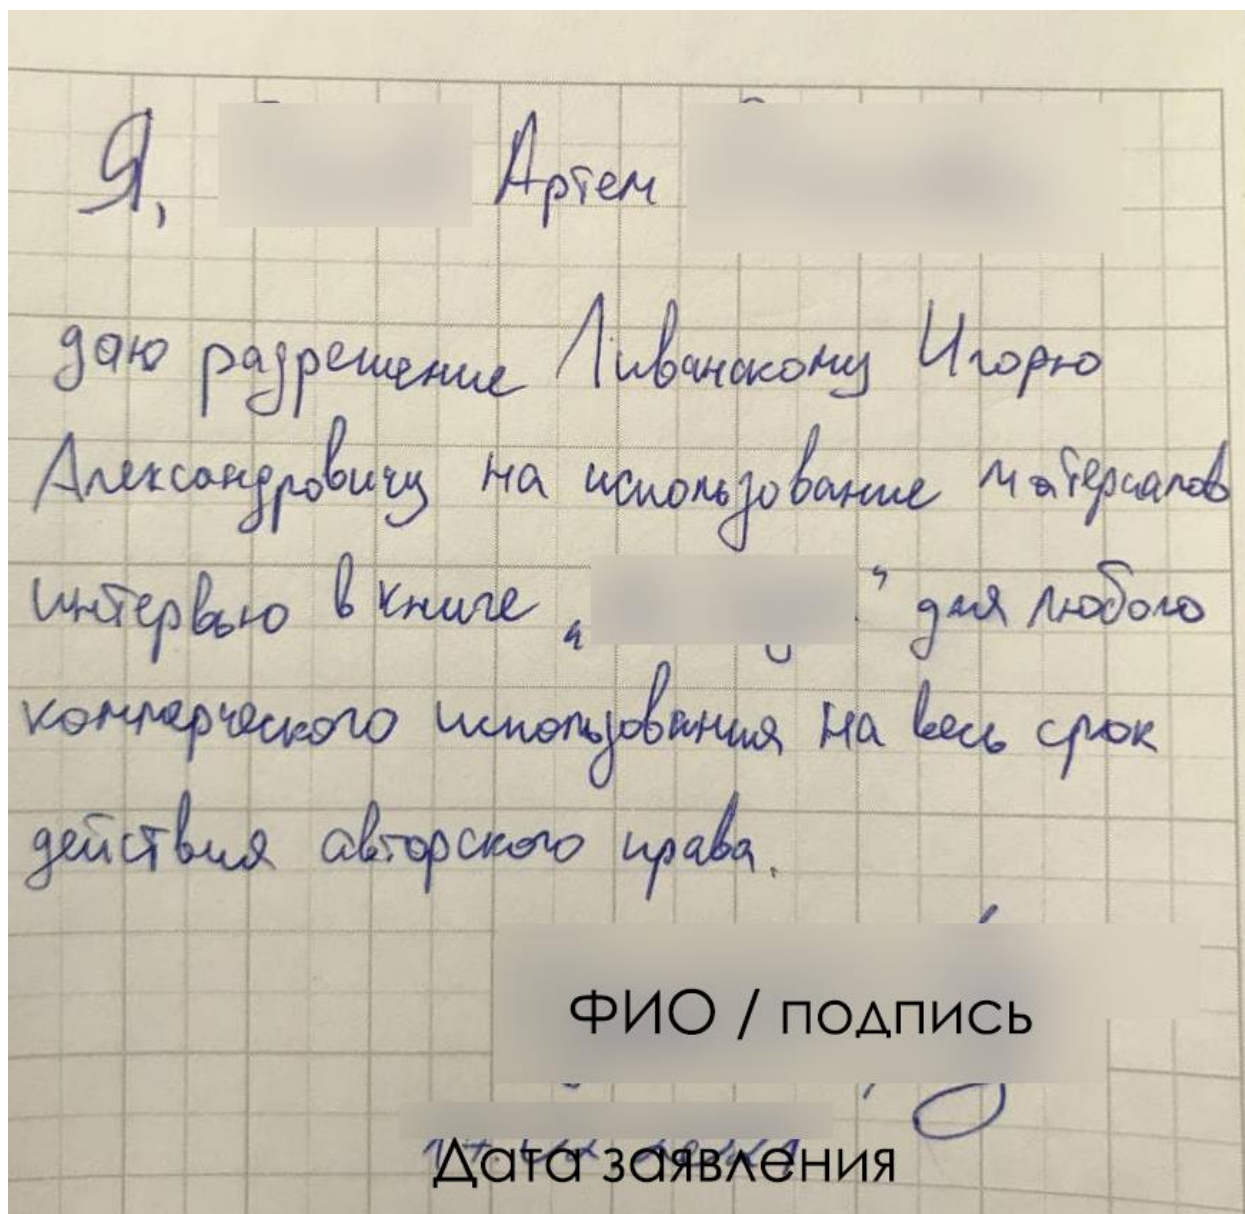 Я, Артем
даю разрешение Ливанскому Игорю
Александровичу на использование материалов
интервью в книге „ “ для любого
коммерческого использования на весь срок
действия авторского права.
ФИО / подпись
Дата заявления